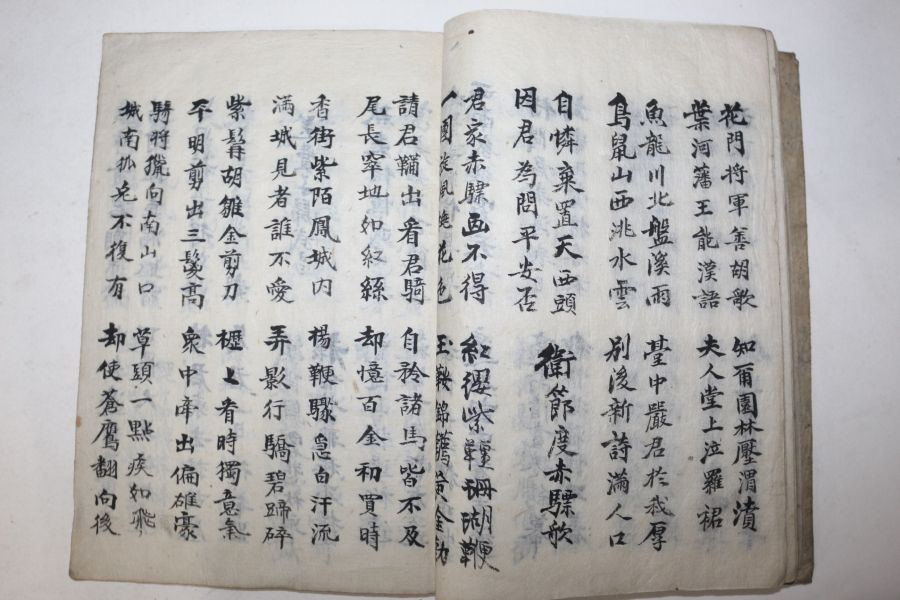 花門将軍善胡歌
葉河藩王能漢語
知爾園林壓渭濱
夫人堂上泣羅裙
魚龍川北盤溪雨
鳥鼠山西洮水雲
臺中嚴君於我厚
別後新詩滿人口
自憐棄置天西頭
因君為問平安否
衛節度赤驃歌
君家赤驃画不得
一團旋風桃花色
紅纓紫韁珊瑚鞭
玉鞍錦韉黃金勒
請君鞴出看君騎
尾長窣地如紅絲
自矜諸馬皆不及
却憶百金初買時
香街紫陌鳳城內
滿城見者誰不愛
楊鞭驟急白汗流
弄影行驕碧蹄碎
紫髯胡雛金剪刀
平明剪出三鬉高
櫪上看時獨意氣
衆中牽出偏雄豪
騎将獵向南山口
城南狐兔不復有
草頭一點疾如飛
却使蒼鷹翻向後